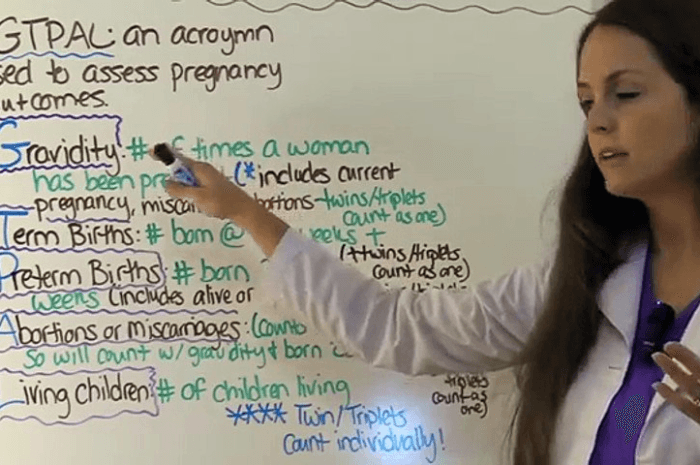 GTPAL: an acroymn
sed to assess pregnancy
utcomes.
Gravidity: # of times a woman
has been pre (*includes current
pregnancy, miscar bortions -twins/triplets
count as one)
Term Births: # born @ weeks +
(*twins/triplets
count as one)
Preterm Births: # born
weeks (includes alive or
Abortions or miscarriages: (counts
so will count w/ gravidity & born
Living children: # of children living
triplets
count as
one)
**** Twin/Triplets
Count individually!